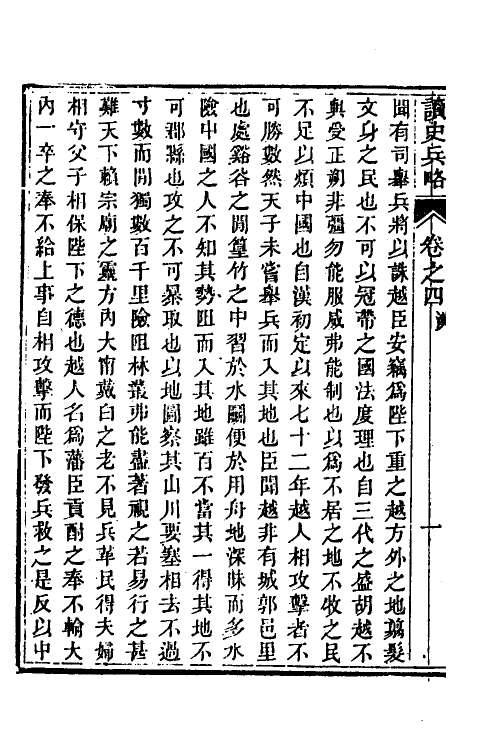 讀史兵略
卷之四 漢
一
聞有司舉兵將以誅越臣安竊爲陛下重之越方外之地翦髮
文身之民也不可以冠帶之國法度理也自三代之盛胡越不
與受正朔非彊勿能服威弗能制也以爲不居之地不牧之民
不足以煩中國也自漢初定以來七十二年越人相攻擊者不
可勝數然天子未嘗舉兵而入其地也臣聞越非有城郭邑里
也處谿谷之閒篁竹之中習於水鬭便於用舟地深昧而多水
險中國之人不知其勢阻而入其地雖百不當其一得其地不
可郡縣也攻之不可暴取也以地圖察其山川要塞相去不過
寸數而閒獨數百千里險阻林叢弗能盡著視之若易行之甚
難天下賴宗廟之靈方內大甯戴白之老不見兵革民得夫婦
相守父子相保陛下之德也越人名爲藩臣貢酎之奉不輸大
內一卒之奉不給上事自相攻擊而陛下發兵救之是反以中